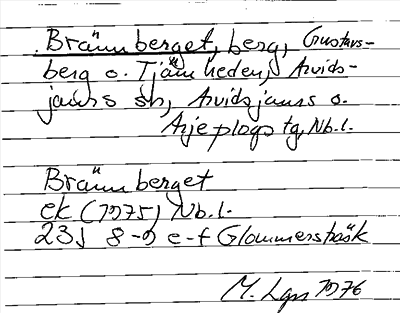 Brännberget, berg, Gustavs-
berg o. Tjärnheden, Arvids-
jaurs sn, Arvidsjaurs o.
Arjeplogs tg, Nb.l.
Brännberget
ek (1975) Nb.l.
23J 8-9 e-f Glommersträsk
M. Lgn 1976